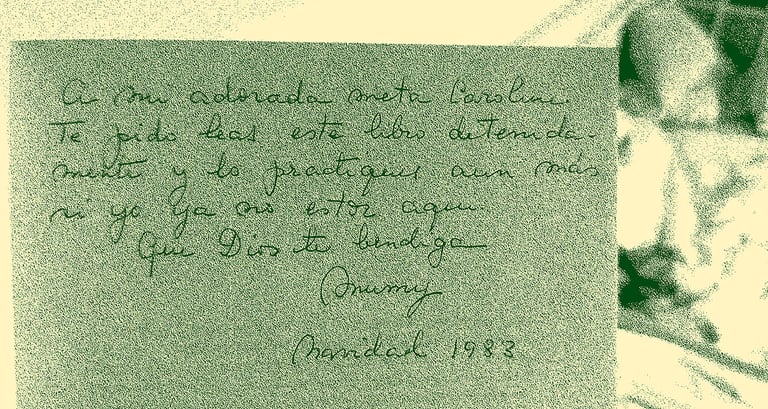 A mi adorada nieta Caroline.
Te pido leas este libro detenida-
mente y lo practiques aun más
si yo ya no estoy aquí.
Que Dios te bendiga
Navidad 1983